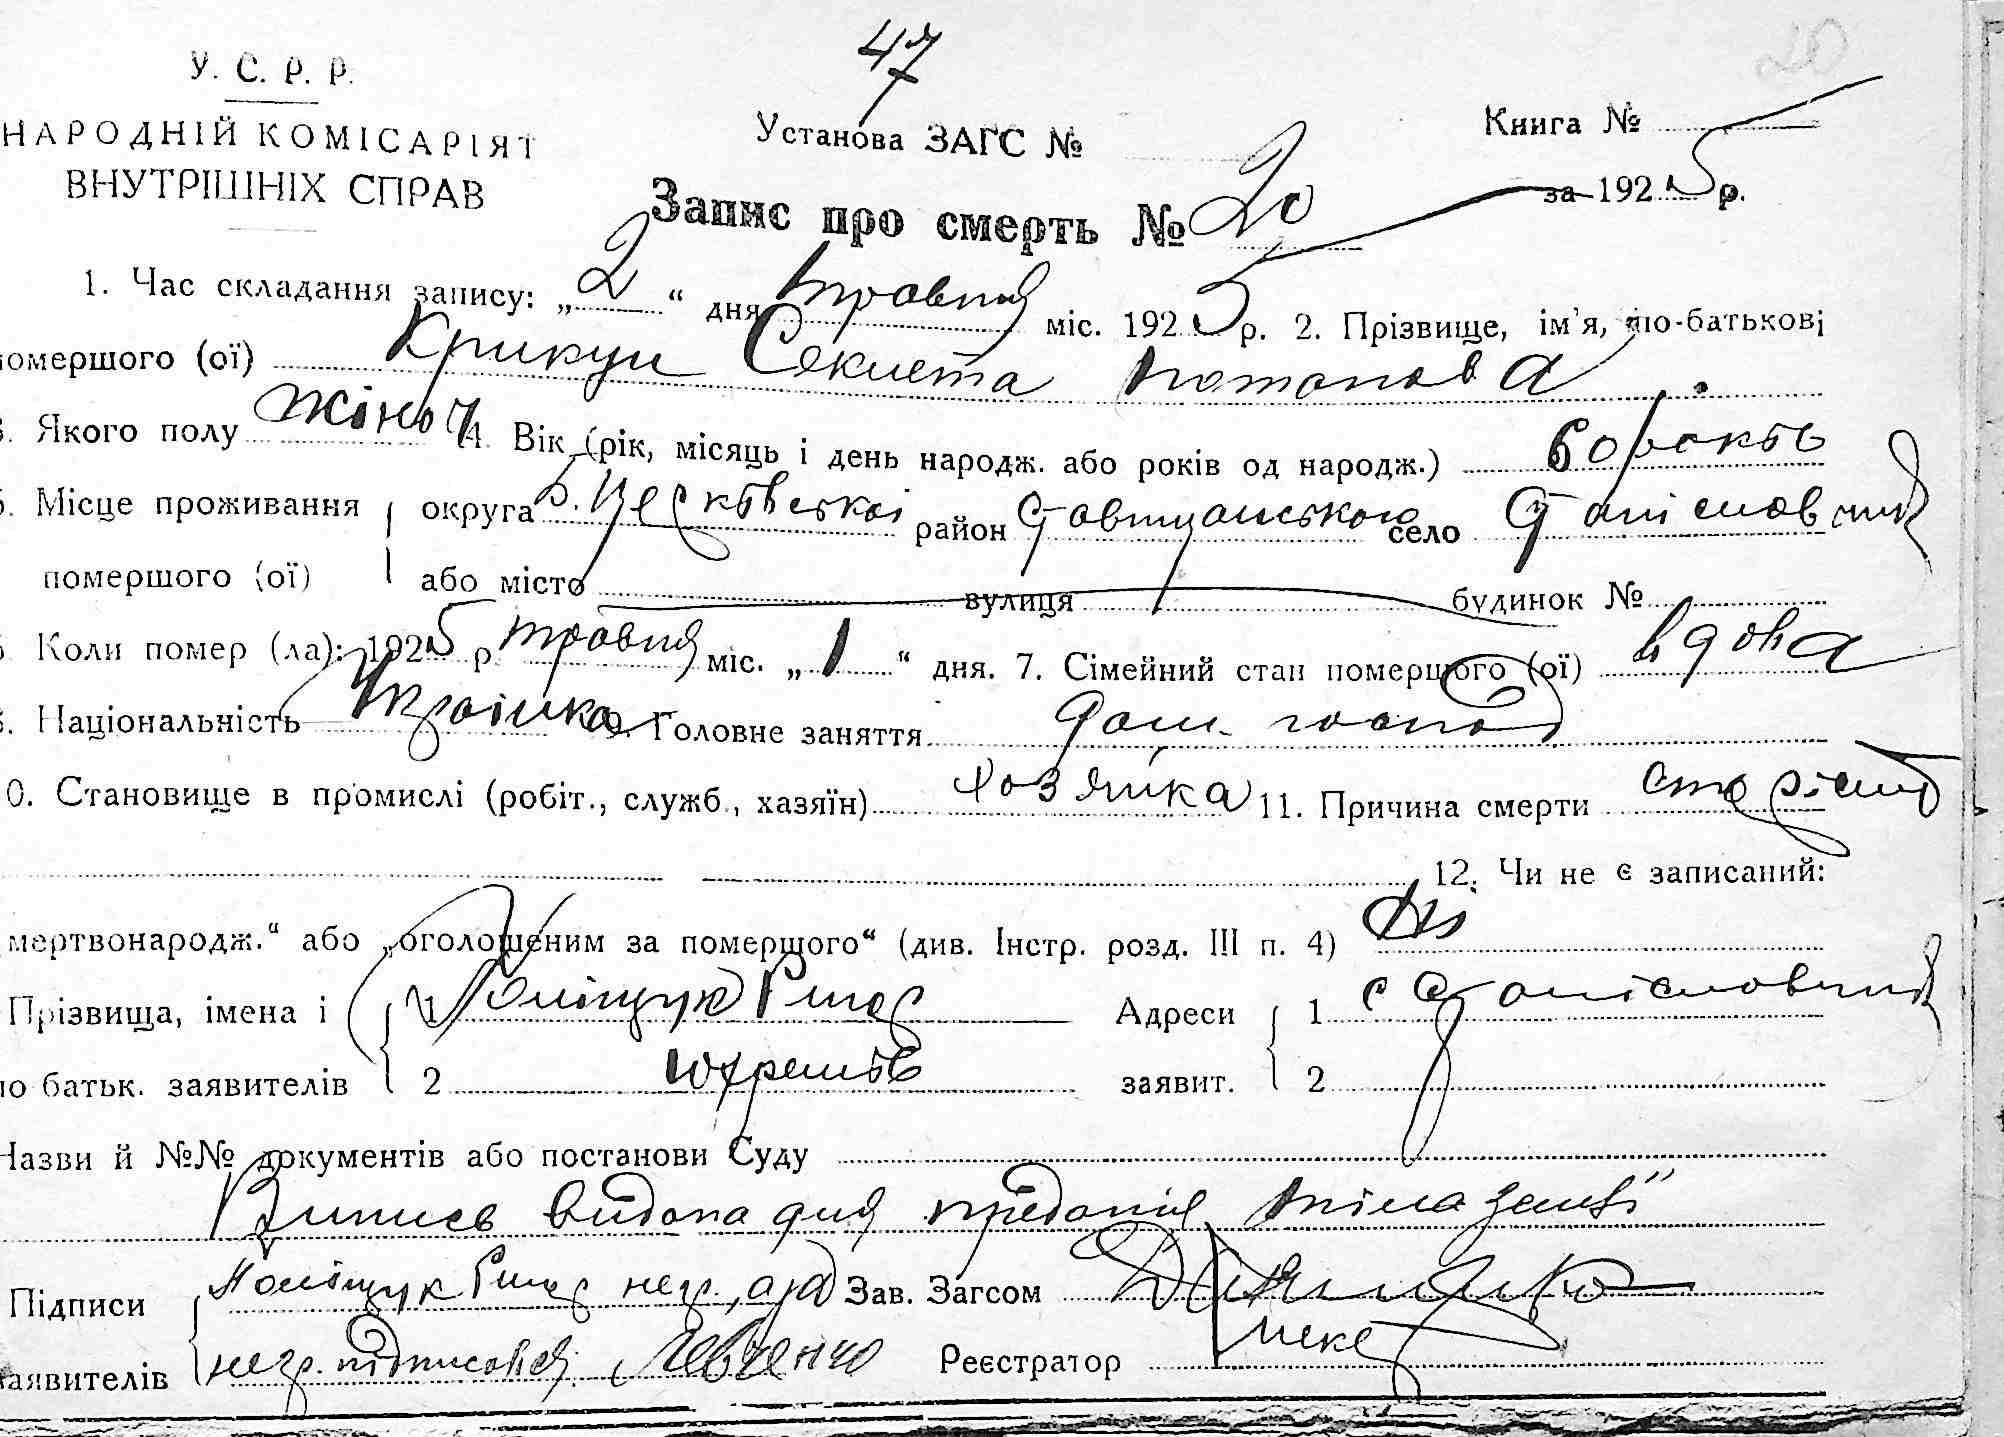 20
47
У. С. Р. Р.
НАРОДНІЙ КОМІСАРІЯТ
ВНУТРІШНІХ СПРАВ
Установа ЗАГС №
Книга №
за 1925 р.
Запис про смерть № 20
1. Час складання запису: „2“ дня травня міс. 1925 р. 2. Прізвище, ім'я, по-батькові
помершого (ої) Крикун Секлета Потапова
3. Якого полу жіноч 4. Вік (рік, місяць і день народж. або років од народж.) 60 років
5. Місце проживання округа Б. Церківської район Ставищанського село Станіславчик
помершого (ої) або місто вулиця будинок №
6. Коли помер (ла): 1925 р травня міс. „1“ дня. 7. Сімейний стан помершого (ої) вдова
8. Національність Українка 9. Головне заняття дом. господ
10. Становище в промислі (робіт., служб., хазяїн) хозяйка 11. Причина смерти старість
12. Чи не є записаний:
мертвонародж.“ або „оголошеним за помершого“ (див. Інстр. розд. III п. 4) Ні
Прізвища, імена і 1 Поліщук Адреси 1 с Станіславчик
по батьк. заявителів 2 заявит. 2
Назви й №№ документів або постанови Суду
Випись видана для предания тіла землі
Підписи Поліщук негр., а за Зав. Загсом
заявителів негр. підписався Левченко Реєстратор